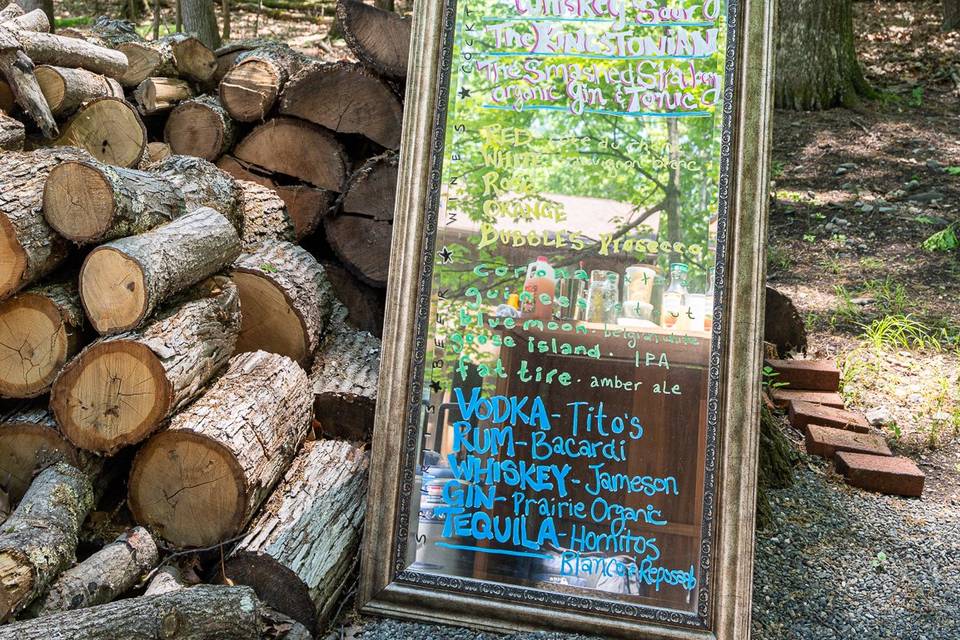 Whiskey Sour
The KINGSTONIAN
The Smashed
organic Gin & Tonic
RED
WHITE - sauvignon blanc
Rosé
ORANGE
BUBBLES Prosecco
corona
guiness
blue moon belgian white
goose island. IPA
fat tire. amber ale
VODKA - Tito's
RUM - Bacardi
WHISKEY - Jameson
GIN - Prairie Organic
TEQUILA - Hornitos
Blanco & Reposado
WINES
BEER